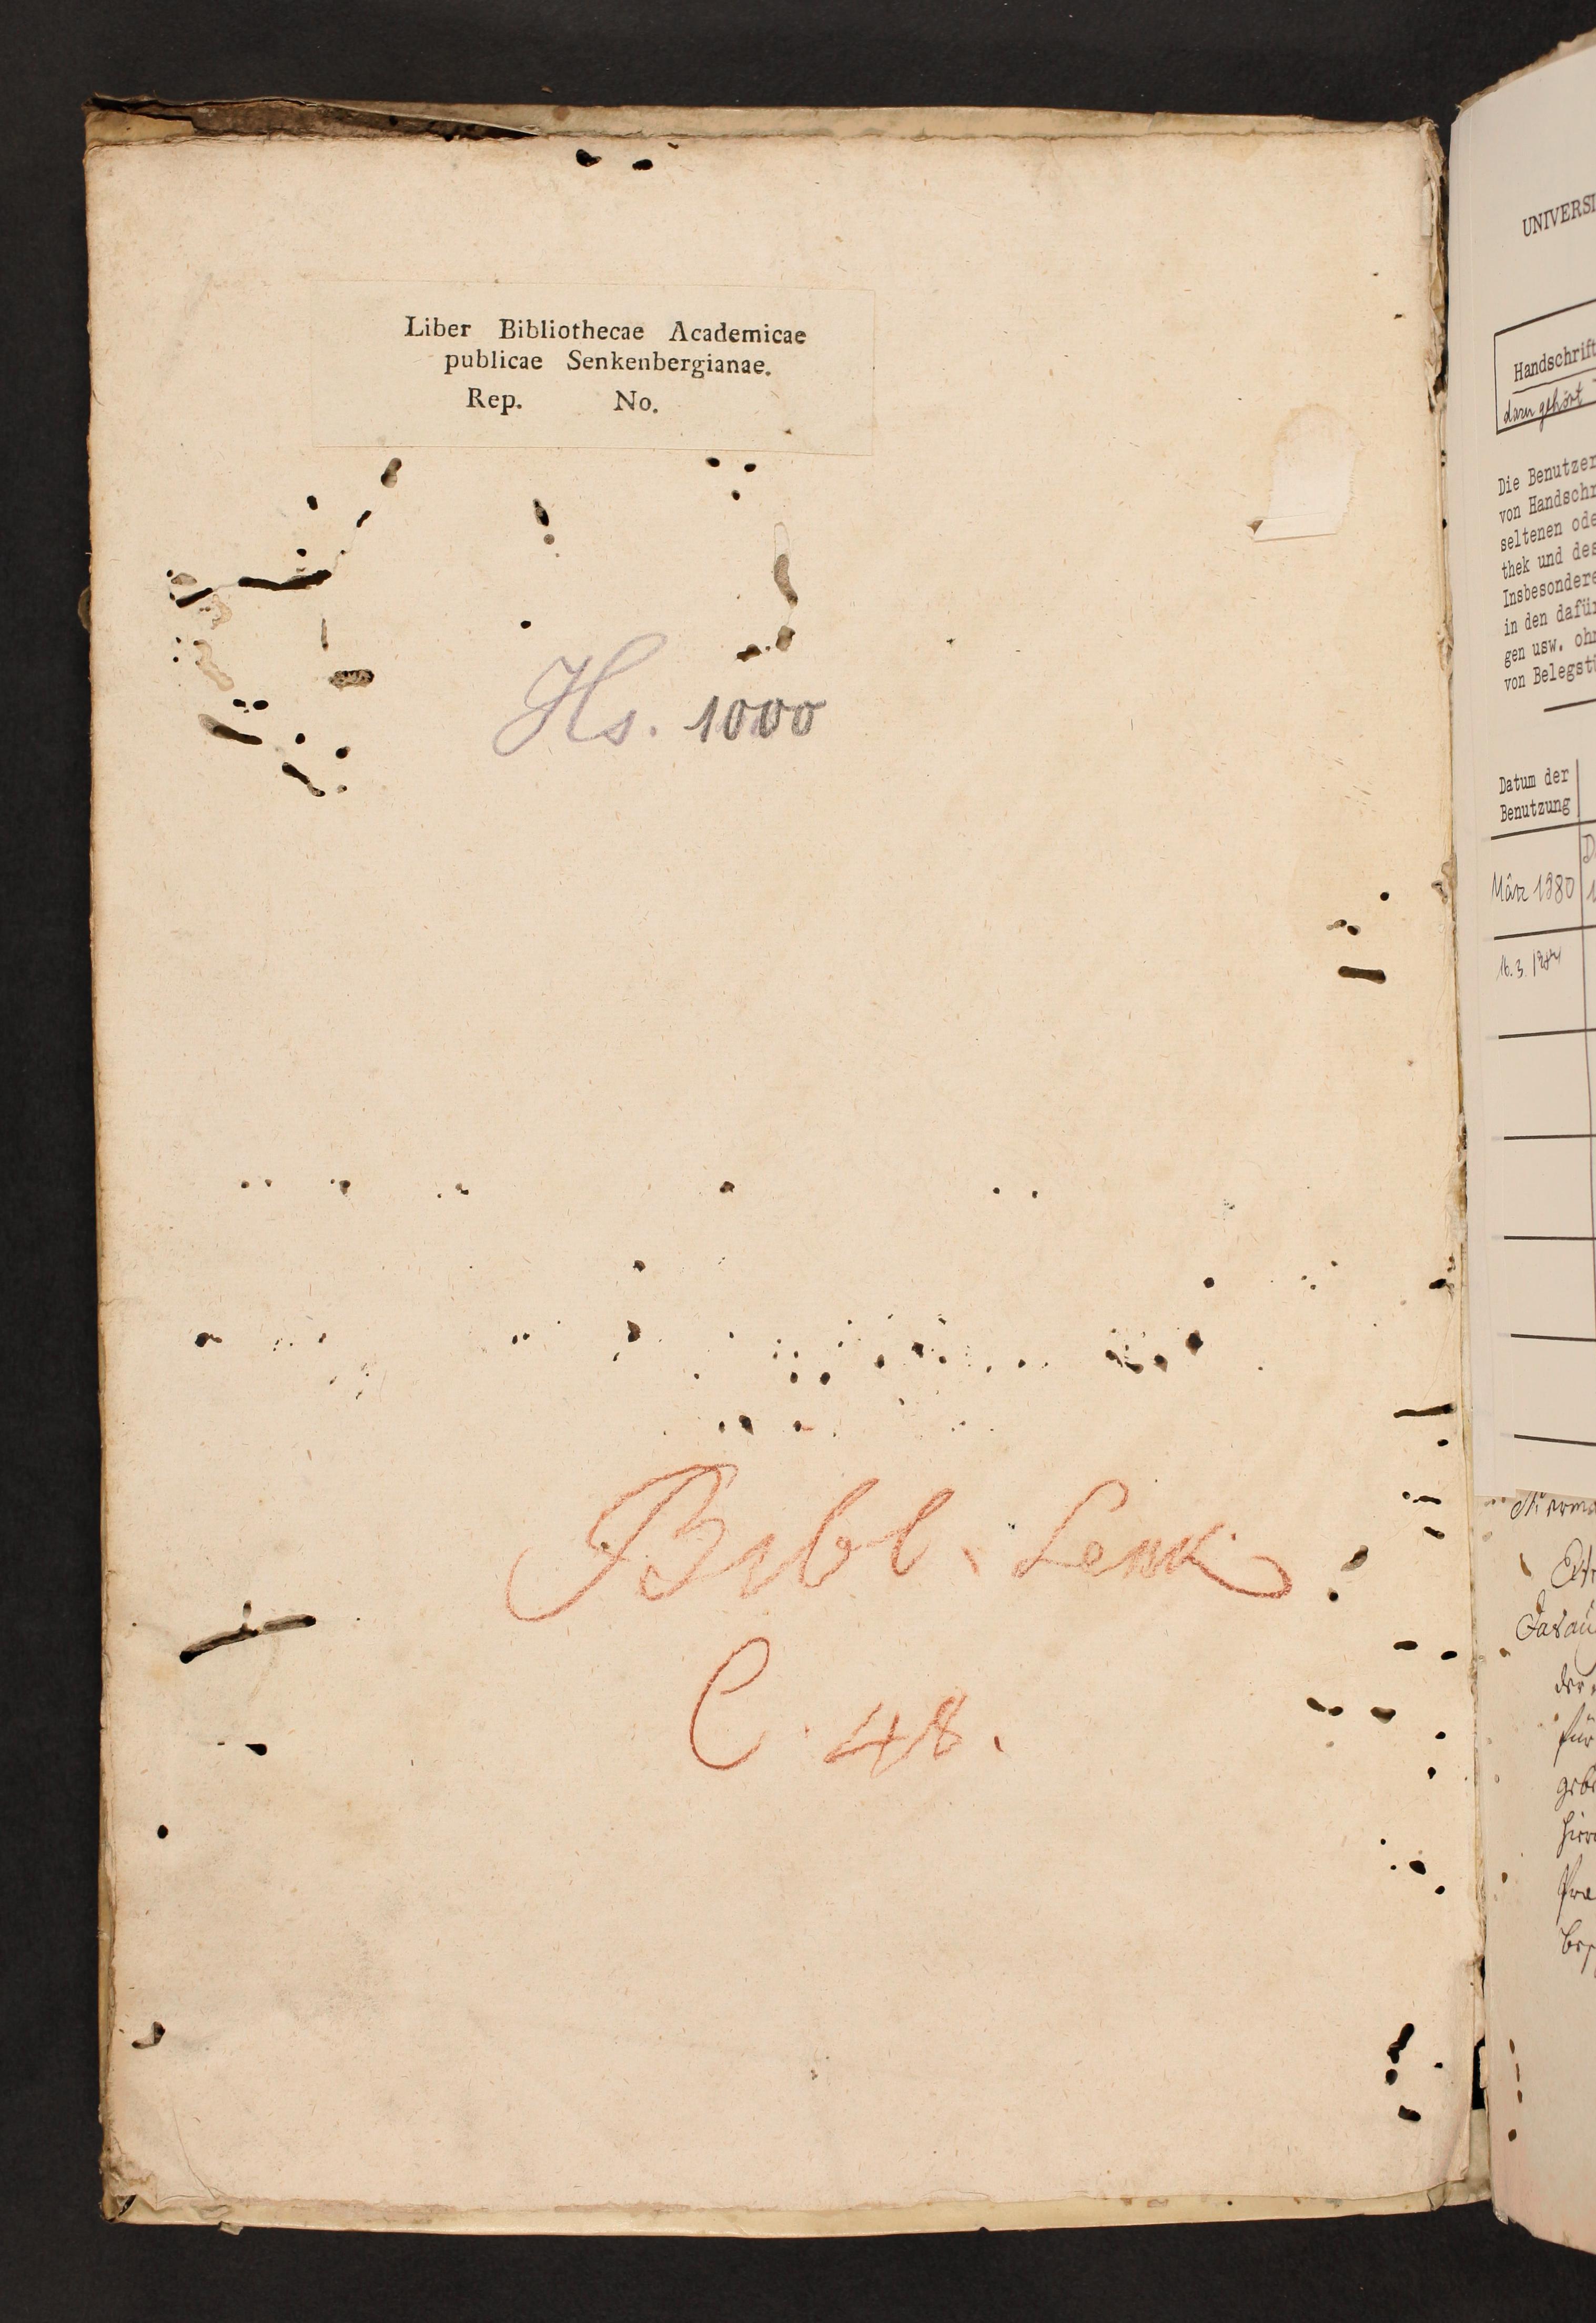 Liber Bibliothecae Academicae
publicae Senkenbergianae.
Rep. No.
Hs. 1000
Bibl. Senk
C. 48.
UNIVERSI
Handschrift
dazu gehört
Die Benutzer
von Handschr
seltenen ode
thek und des
Insbesondere
in den dafür
gen usw. ohn
von Belegst
Datum der
Benutzung
März 1980
16.3.
der
für